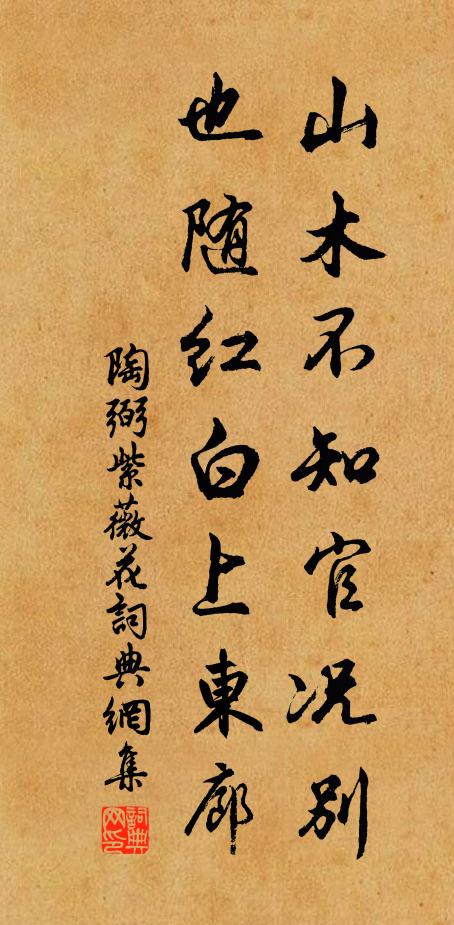 山木不知官况别
也随紅白上東廊
陶弼紫薇花詞典網集
詞典網印